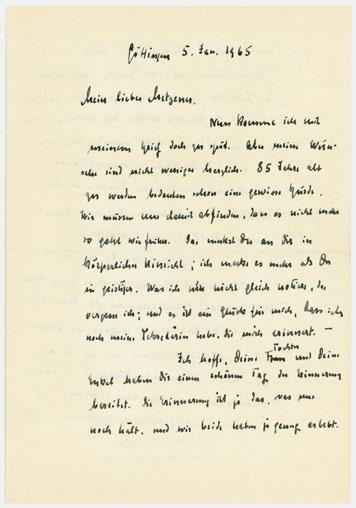 Göttingen 5. Jan. 1965
Mein lieber Metzener,
Nun komme ich mit
meinem Brief doch zu spät. Aber meine Wün-
sche sind nicht weniger herzlich. 85 Jahre alt
zu werden bedeutet schon eine gewisse Hürde.
Wir müssen uns damit abfinden, dass es nicht mehr
so geht wie früher. Das merkst Du an Dir in
körperlicher Hinsicht; ich merke es mehr als Du
in geistiger. Was ich mir nicht gleich notiere, das
vergesse ich; und es ist ein Glück für mich, dass ich
noch meine Sekretärin habe, die mich erinnert. —
Ich hoffe, Deine Tochter und Deine
Enkel haben Dir einen schönen Tag der Erinnerung
bereitet. Die Erinnerung ist ja das, was uns
noch hält, und wir beide haben ja genug erlebt.